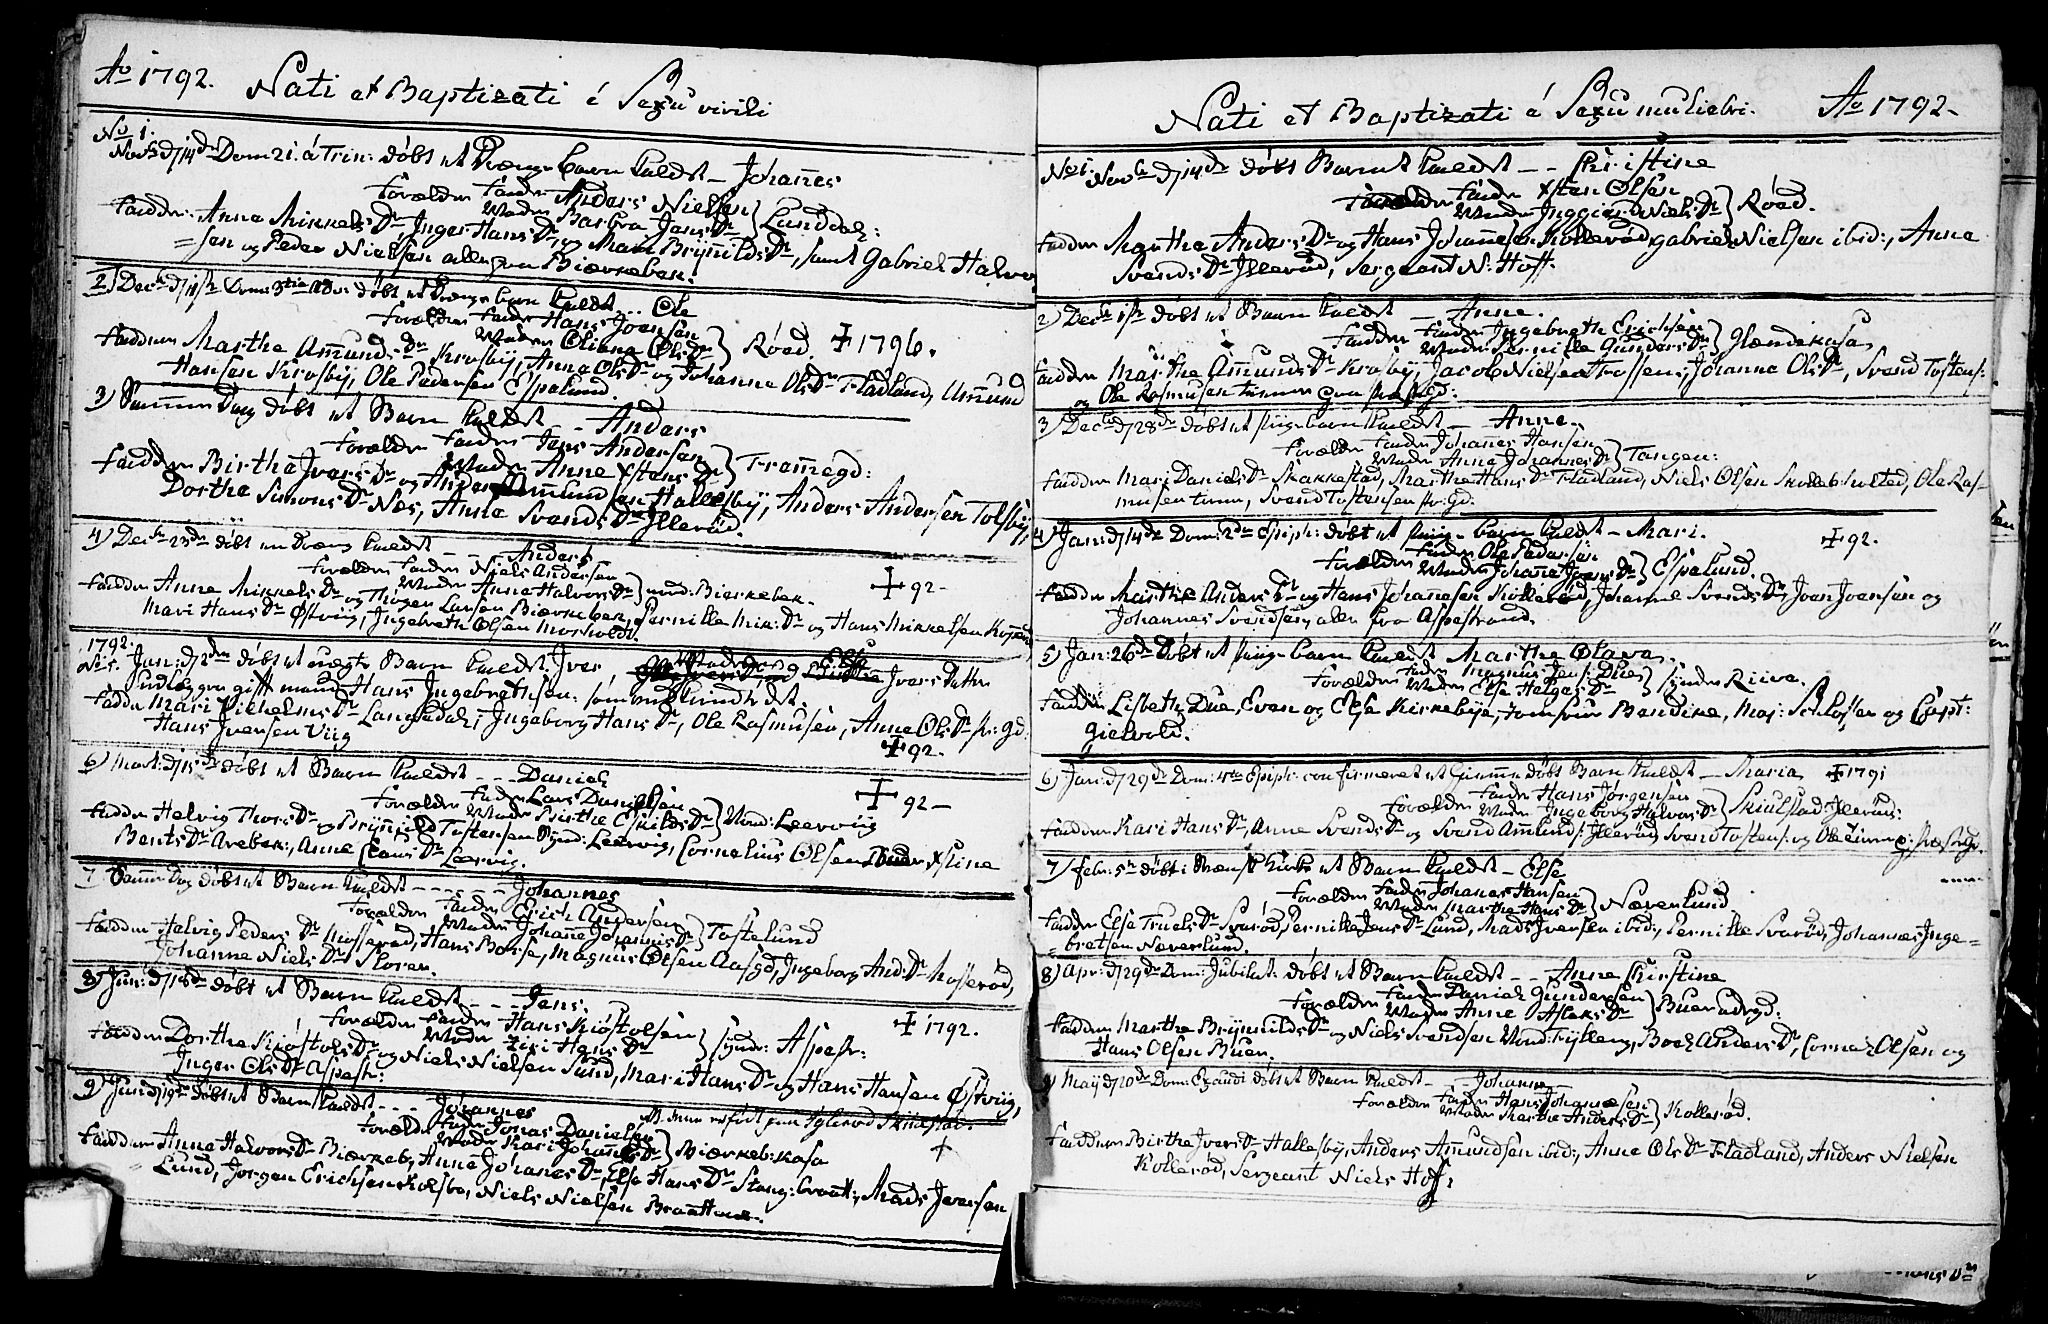 Ao 1792. Nati et Baptizati é Sexu virili
No 1.
Novb: d/14de Dom 21. á Trin: døbt et Drænge barn kaldt – Johañes
Forældre Fader Anders Nielsen
Moder Barbra Jans Dr } Lunddal:
Faddr: Anne Mikkels Dr Inger Hans Dr, og Mari Brÿnilds Dr, samt Gabriel Halvor
=sen og Peder Nielsen alle fra Biørnebek.
2) Decb d/1ste Dom: 3tia Adv: døbt et Drænge barn kaldt – Ole
Forældre Fader Hans Joensen
Moder Eliana Ols Dr } Röed. + 1796.
Faddere Marthe Amunds Dr Krosbÿ, Anne Ols Dr og Johanne Ols Dr Fladland, Amund
Hansen Krosbÿ, Ole Pedersen Espelund.
3) Samme Dag døbt et Barn kaldt – Anders
Forældre Fader Jens Andersen
Moder Anne Xstens Dr } Framegd:
Faddere Birthe Ivers Dr og Anders Amundsen Hallesbÿ, Anders Andersen Tolsbÿ,
Dorthe Simons Dr Næs, Anne Svends Dr Illeröd.
4) Decbr 23de döbt en Dreng kaldt – – Anders
Forældre Fader Niels Andersen
Moder Anne Halvors Dr } nord: Biørnebek. + 92 –
Faddere Anne Mikkels Dr og Thrgen Larsen Biørnebek, Pernille Mik: Dr og Hans Mikkelsen
Mari Hans Dr Østviig, Ingebreth Olsen Morholdt.
1792.
No 5. Jan: d/2den døbt et uægte Barn kaldt Iver Moder Else Ivers Datter
udlægger gift mand Hans Ingebrethsen
Faddr Mari Vilhelms Dr Langedal; Ingeborg Hans Dr, Ole Rasmusen, Anne Ols Dr Pr: gd
Hans Iversen Viig + 92.
6) Mart: d/15de døbt et Barn kaldt – – Daniel
Forældre Fader Lars Danielsen
Moder Birthe Eskilds Dr } Nord: Leerviig + 92 –
Faddere Helvig Thors Dr og Brÿnild Tostensen Synd: Leervig, Cornelius Olsen Buer Xstine
Bents Dr Arebek:, Anne Claus Dr Leervig.
7) Samme Dag døbt et Barn kaldt – – – – – Johannes
Forældre Fader Erich Andersen
Moder Johañe Johannis Dr } Tostelund
Faddere Helvig Peders Dr Mosseröd, Hans Borse, Magnus Olsen Aasgd, Ingeborg And: Dr Mosseröd,
Johanne Niels Dr Floren.
8) Jun: d/18de døbt et Barn kaldt – – – Jens.
Forældre Fader Hans Kiøstolsen
Moder Siri Hans Dr } syndr: Aspestr: + 1792.
Faddere Dorthe Kiøstols Dr og Niels Nielsen Sund, Mari Hans Dr og Hans Hansen Østviig,
Inger Ols Dr Aspestr:
9) Jun: d/19de døbt et Barn kaldt – – – Johannes
Forældre Fader Jonas Danielsen
Moder Kari Johans Dr } Biørneb: kasa +
Faddere Anne Halvors Dr Biørneb, Anne Johanes Dr, Else Hans Dr Stang: braatt:, Mads Iversen
Lund, Jørgen Erichsen Kolsbo, Niels Nielsen Braatten.
Nati et Baptizati é Sexu muliebri. Ao 1792 –
No 1. Novb d/14de døbt Barnet kaldt – – Christine
Forældre Fader Xsten Olsen
Moder Inggier Niels Dr } Röed.
Faddere Marthe Anders Dr og Hans Johañesen Kolleröd, Gabriel Nielsen ibid:, Anne
Svends Dr Illeröd, Sergeant N: Hoff.
2) Decb 1ste døbt et Barn kaldt – Anne.
Fader Ingebreth Erichsen
Moder Pernille Gunders Dr } Glændekasa
Faddere Marthe Amunds Dr Krosbÿ, Jacob Nielsen Frossens; Johanne Ols Dr, Svend Tostens:
og Ole Rasmusen timer paa Præstgd:
3) Decb d/28de døbt et Pige barn kaldt – Anne.
Forældre Fader Johañes Hansen
Moder Anne Johannes Dr } Tangen:
Faddere Mari Daniels Dr Skakkestad, Marthe Hans Dr Fladland, Niels Olsen Skolleholted, Ole Ras-
musen timer, Svend Tostensen Pr: gd:
4) Jan: d/14de Dom: 2de Epiph: døbt et Pige barn kaldt – Mari. + 92.
Forældre Fader Ole Pedersen
Moder Johañe Joens Dr } Espelund.
Faddere Marthe Anders Dr og Hans Johanesen Kolleröd, Johanne Svends Dr, Joen Joensen og
Johannes Svendsen, alle fra Aspestrand.
5) Jan: 26de Døbt et Pige barn kaldt Marthe Olava.
Forældre Fader Magnus Jens: Due
Moder Else Helges Dr } Synder Riive.
Faddere Lisbeth Due, Even og Else Kirkebÿe, Jomfrue Bendike, Maj: Schlosser og Capt:
Gielvold.
6) Jan: d/29de Dom: 4ta Epiph: confirmeret et Hjemme døbt Barn kaldt – Maria, + 1791
Forældre Fader Hans Jørgensen
Moder Ingeborg Halvors Dr } Skiulstad Illeröd:
Faddere Kari Hans Dr, Anne Svends Dr og Svend Amunds: Illeröd, Svend Tostens: og Ole timer p: Præstgd.
7) Febr: 5te døbt i Næns: Kirke et Barn kaldt – Else
Forældre Fader Johanes Hansen
Moder Marthe Hans Dr } Næverlund
Faddere Else Truels Dr Svaröd, Pernille Jens Dr Lund, Mads Iversen ibid:, Pernille Svaröd, Johannes Inge=
=bretsen Næverlund.
8) Apr: d/29de Dom: Jubilat: døbt et Barn kaldt – – Anne Christine
Forældre Fader Daniel Gundersen
Moder Anne Aslaks Dr } Buerödegd:
Faddere Marthe Brÿnilds Dr og Niels Svendsen Nord: Fÿlleng, Boel Anders Dr, Cornel Olsen og
Hans Olsen Buer.
9) Maÿ d/20de Dom: Exaudi døbt et Barn kaldt – – Johanne
Forældre Fader Hans Johanesen
Moder Marthe Anders Dr } Kolleröd.
Faddere Birthe Ivers Dr Hallesbÿ, Anders Amundsen ibid:, Anne Ols Dr Fladland, Anders Nielsen
Kolleröd, Sergeant Niels Hoff: